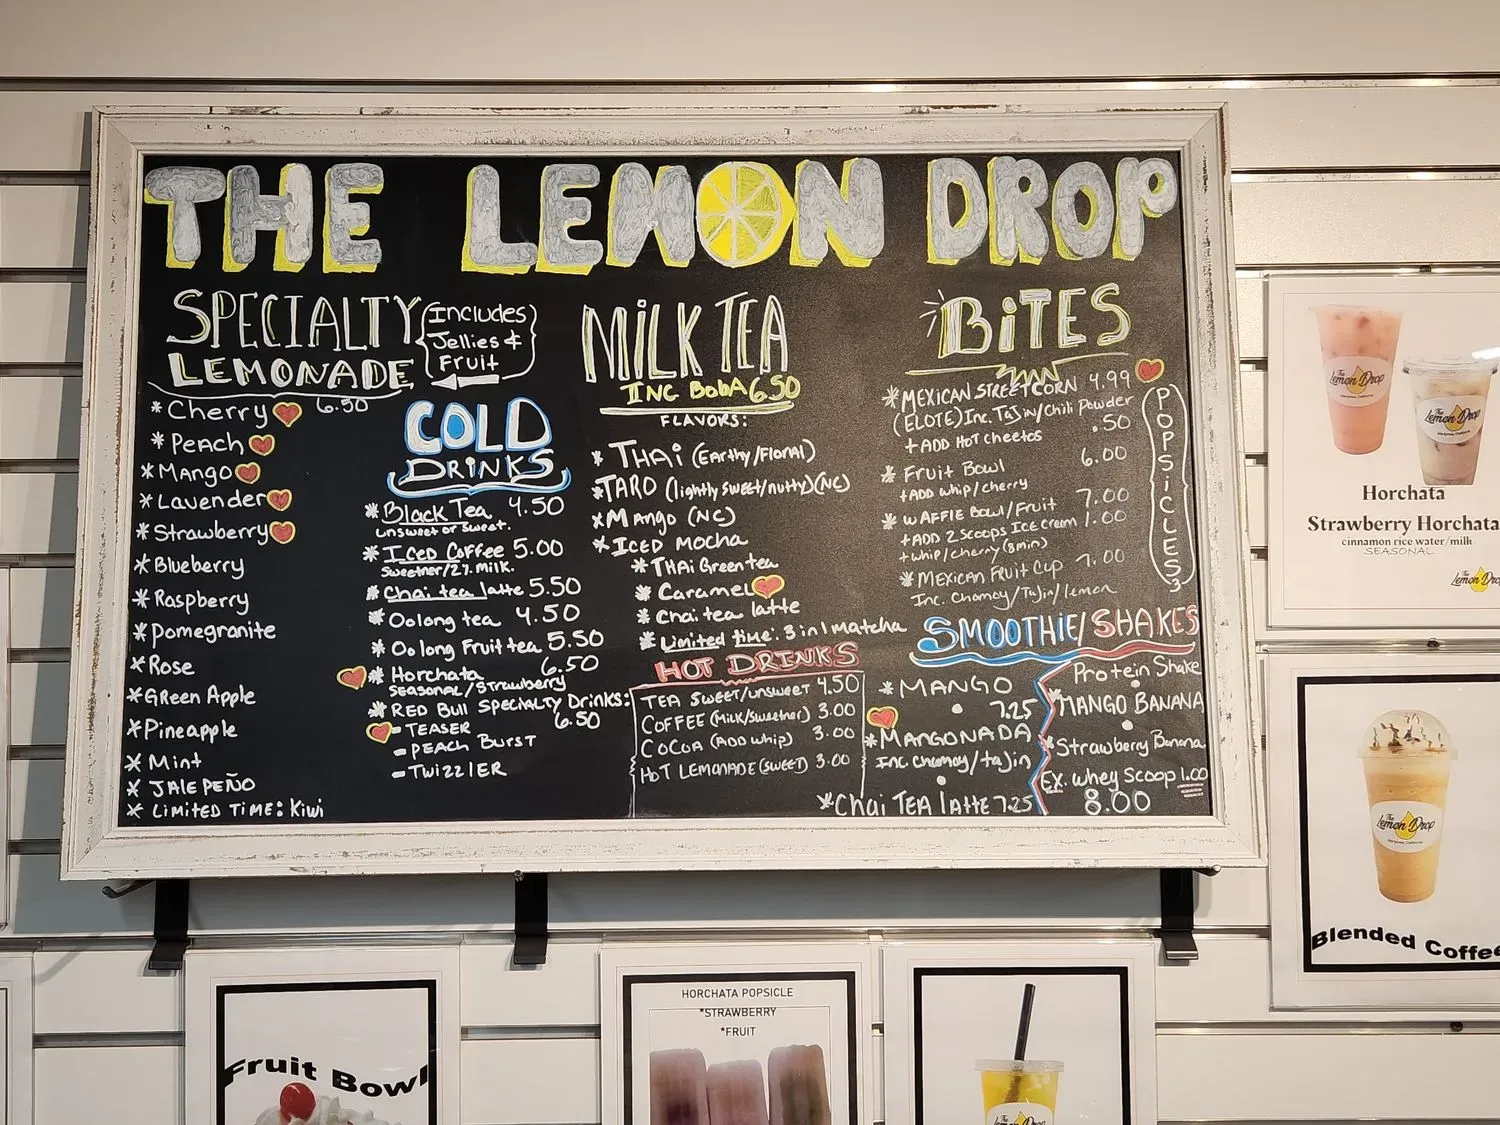 THE LEMON DROP
SPECIALTY
LEMONADE
{Includes
Jellies &
Fruit}
* Cherry 6.50
* Peach
* Mango
* Lavender
* Strawberry
* Blueberry
* Raspberry
* Pomegranite
* Rose
* Green Apple
* Pineapple
* Mint
* JALEPEÑO
* LIMITED TIME: Kiwi
COLD
DRINKS
* Black Tea 4.50
unsweet or sweet.
* ICED COFFEE 5.00
sweetner/2% milk.
* Chai tea latte 5.50
* Oolong tea 4.50
* Oolong Fruit tea 5.50
* Horchata 6.50
SEASONAL/Strawberry
* RED BULL SPECIALTY DRINKS:
6.50
- TEASER
- PEACH BURST
- TWIZZLER
MILK TEA
INC BobA 6.50
FLAVORS:
* THAI (Earthy/Floral)
* TARO (lightly sweet/nutty)(NC)
* Mango (NC)
* ICED MOCHA
* THAI Green tea
* Caramel
* Chai tea latte
* Limited time: 3 in 1 matcha
HOT DRINKS
TEA SWEET/UNSWEET 4.50
COFFEE (Milk/sweetner) 3.00
COCOA (ADD whip) 3.00
HOT LEMONADE (SWEET) 3.00
BITES
* MEXICAN STREET CORN 4.99
(ELOTE) Inc. TaJin/Chili Powder
+ ADD HOT cheetos .50
* Fruit Bowl 6.00
+ ADD whip/cherry
* WAFFlE Bowl/Fruit 7.00
+ ADD 2 Scoops Ice cream 1.00
+ whip/cherry (8min)
* MEXICAN FRUIT CUP 7.00
Inc. Chamoy/TaJin/lemon
POPSICLES 3
SMOOTHIE/SHAKES
* MANGO
7.25
* MANGONADA
INC chamoy/tajin
* Chai TEA latte 7.25
Protein Shake
* MANGO BANANA
* Strawberry Banana
Ex. Whey Scoop 1.00
8.00
The
Lemon Drop
Mariposa, California
The
Lemon Drop
Horchata
Strawberry Horchata
cinnamon rice water/milk
SEASONAL
Lemon Drop
The
Lemon Drop
Mariposa, California
Blended Coffee
Fruit Bowl
HORCHATA POPSICLE
*STRAWBERRY
*FRUIT
The
Lemon Drop